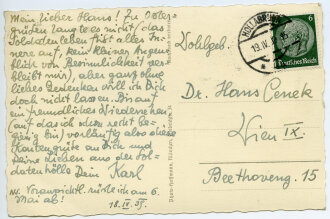 Mein lieber Hans! Zu Oster-
grüßen langte es nicht, das
Soldatenleben füllt alles In-
nere auf, kein kleiner Augen-
blick von Besinnlichkeit ver-
bleibt mir, aber ganz ohne
liebes Gedenken will ich Dich
doch nicht lassen. Bis auf
ein freundliches Wiedersehen
(auf das ich schon recht be-
gierig bin) vorläufig also diese
Kartengrüße an Dich und
Deine Lieben aus der Sol-
datenhölle Dein Karl
N.S. Voraussichtl. rüste ich am 6.
Mai ab!
18.IV.39.
HOLLABRUNN
19.IV.
6
Deutsches Reich
Wohlgeb.
Dr. Hans Cenek
Wien IX.
Beethoveng. 15